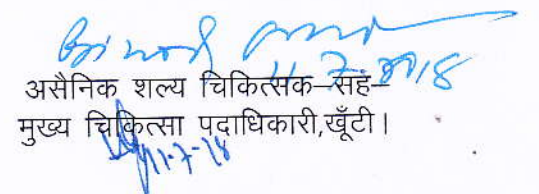 Binod
11-7-2018
असैनिक शल्य चिकित्सक–सह–
मुख्य चिकित्सा पदाधिकारी,खूँटी।
11-7-18